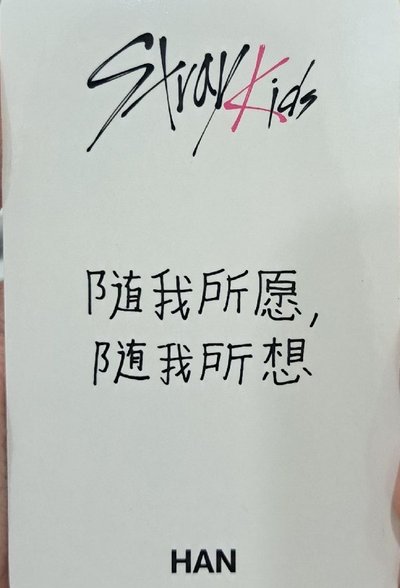 Stray Kids
随我所愿,
随我所想
HAN